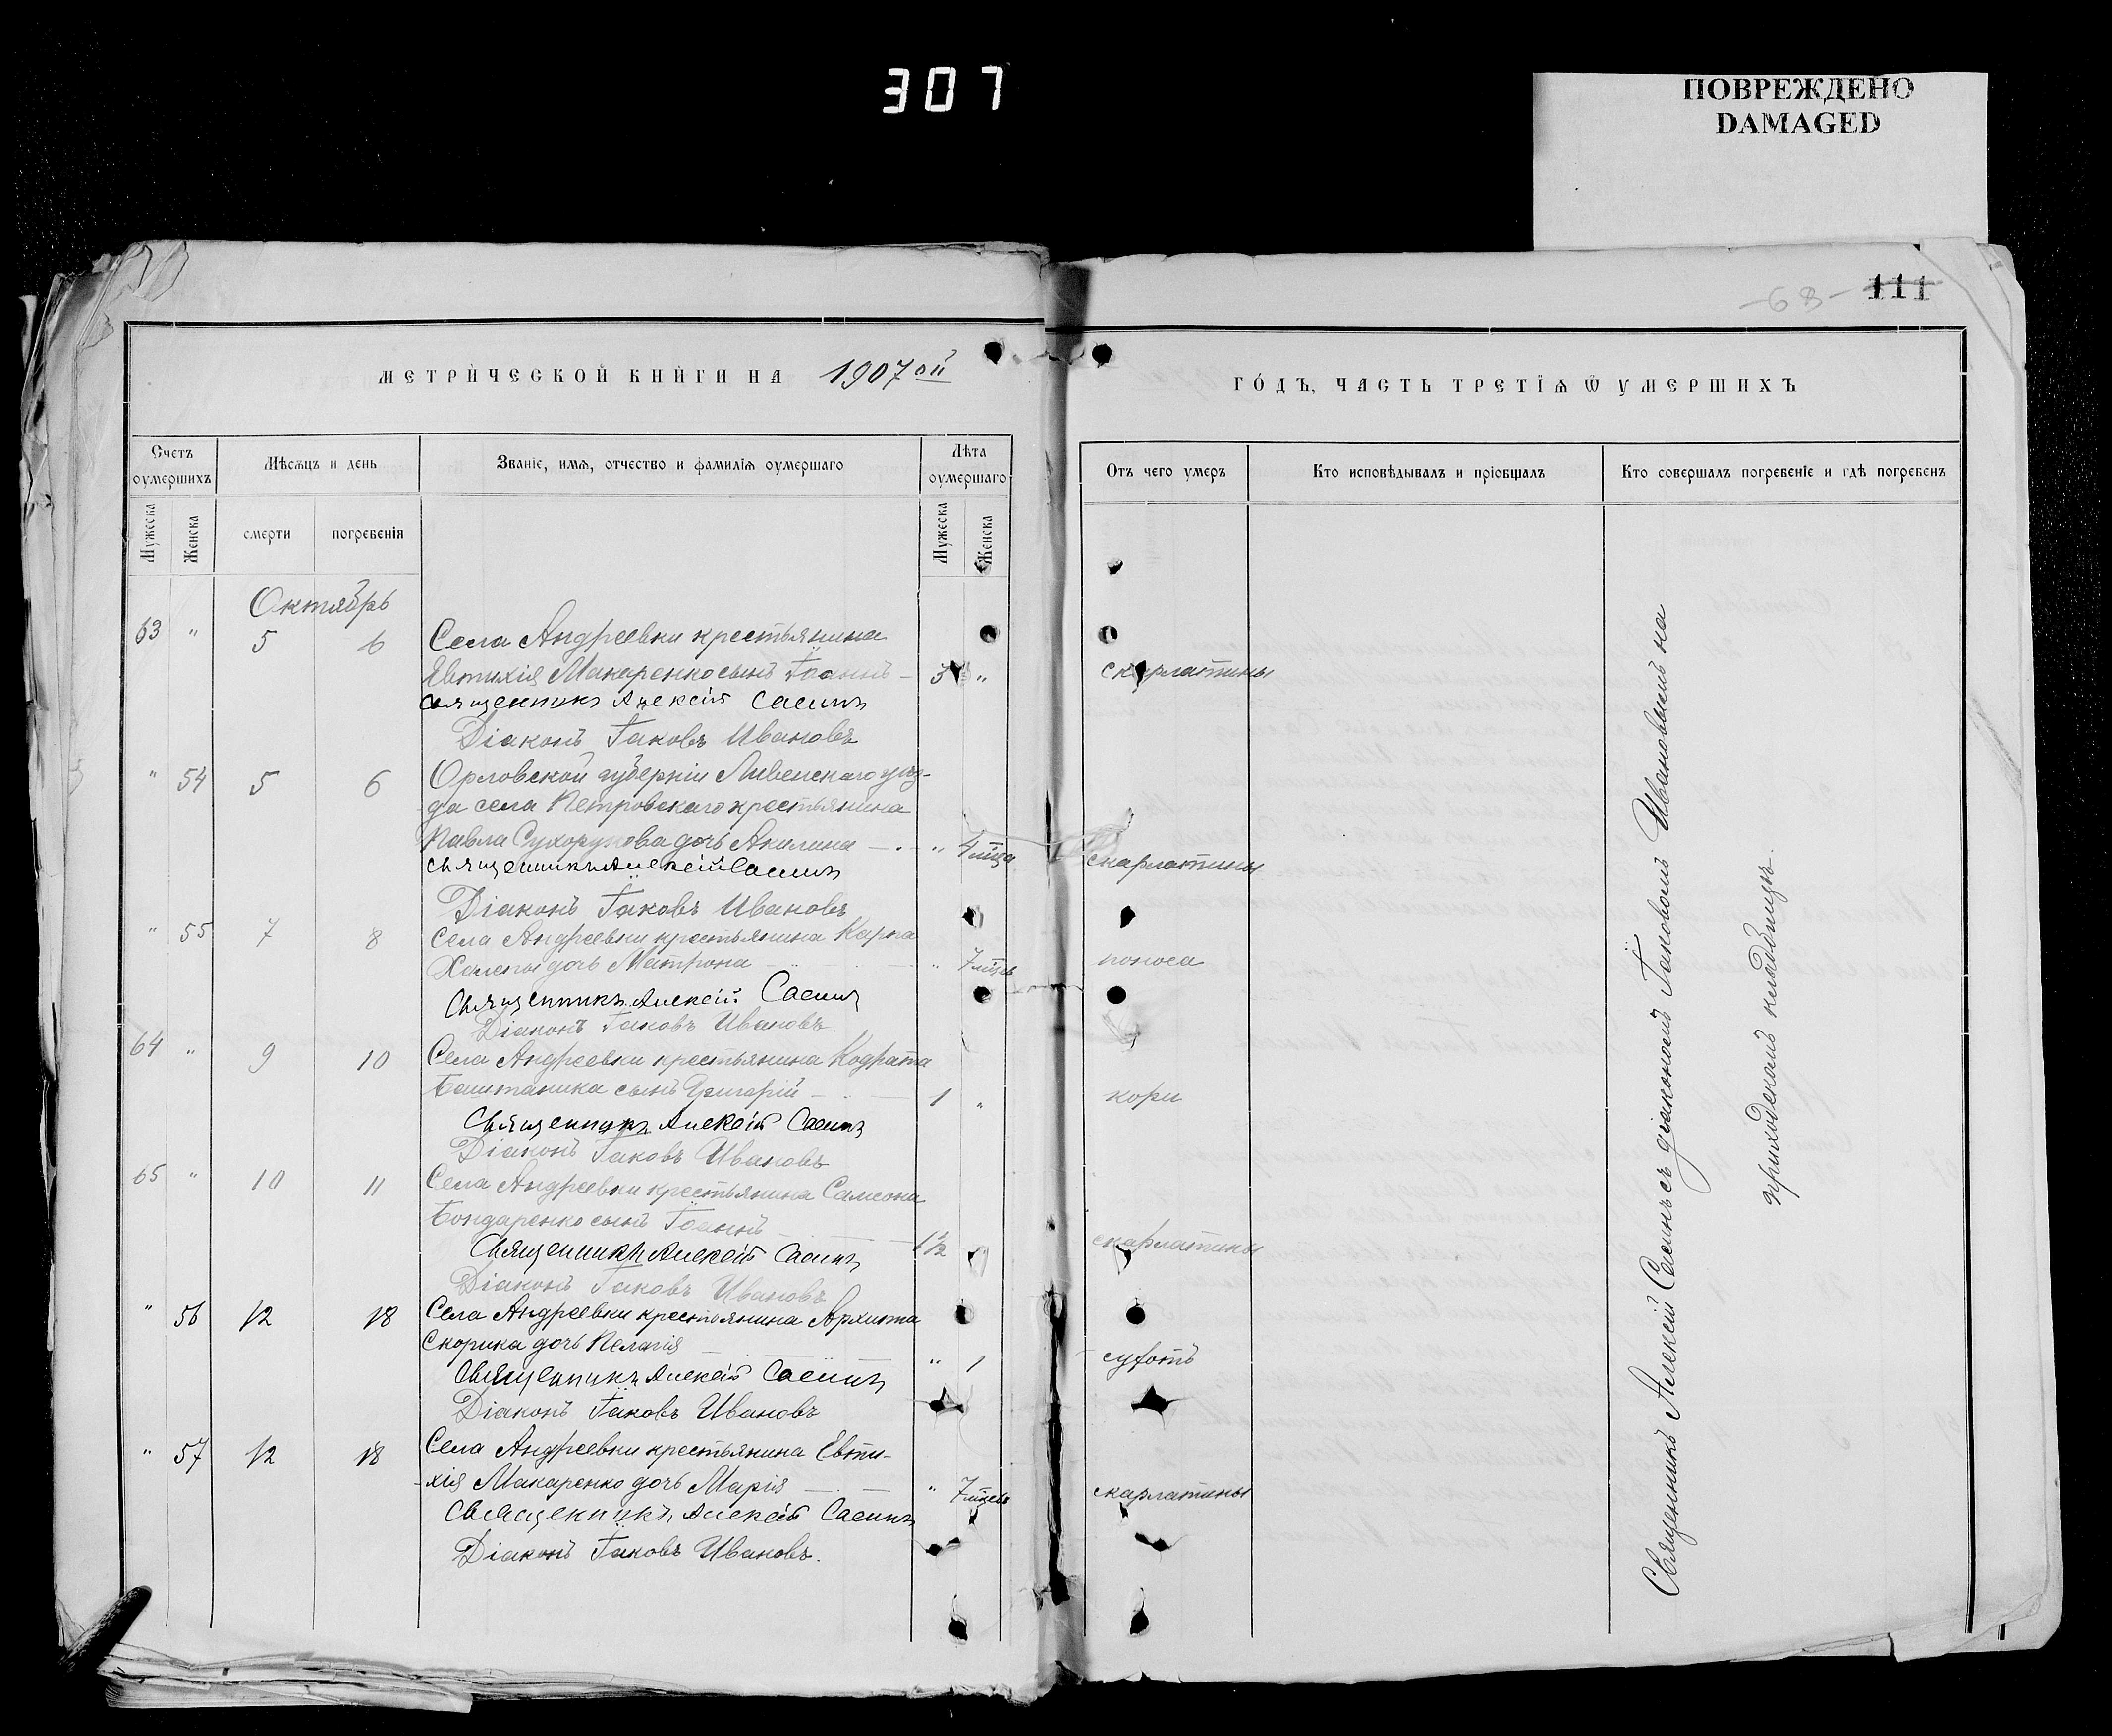 307
ПОВРЕЖДЕНО
DAMAGED
-68- 111
МЕТРИЧЕСКОЙ КНИГИ НА 1907ой
ГОДЪ, ЧАСТЬ ТРЕТІѦ Ѿ УМЕРШИХЪ
Счетъ оумершихъ
Мѣсѧцъ и день
Званіе, имѧ, отчество и фамиліѧ оумершаго
Лѣта оумершаго
Отъ чего умеръ
Кто исповѣдывалъ и пріобщалъ
Кто совершалъ погребеніе и гдѣ погребенъ
Мужеска Женска смерти погребеніѧ Мужеска Женска
Октябрь
63 " 5 6 Села Андреевки крестьянина
Евтихія Макаренко сынъ Іоаннъ — 3 " скарлатины
Священникъ Алексій Саенъ
Діаконъ Іаковъ Ивановъ
" 54 5 6 Орловской губерніи Ливенскаго уѣз-
да села Петровскаго крестьянина
Павла Сухорукова дочь Акилина — " 4 мѣца скарлатины
Священникъ Алексій Саенъ
Діаконъ Іаковъ Ивановъ
" 55 7 8 Села Андреевки крестьянина Карпа
дочь Матрона " 7 мѣцъ поноса
Священникъ Алексій Саенъ
Діаконъ Іаковъ Ивановъ.
64 " 9 10 Села Андреевки крестьянина Кодрата
Баштаника сынъ Григорій — 1 " кори
Священникъ Алексій Саенъ
Діаконъ Іаковъ Ивановъ
65 " 10 11 Села Андреевки крестьянина Самсона
Бондаренко сынъ Іоаннъ 1½ скарлатины
Священникъ Алексій Саенъ
Діаконъ Іаковъ Ивановъ
" 56 12 18 Села Андреевки крестьянина Архипа
Скорика дочь Пелагія " 1
Священникъ Алексій Саенъ
Діаконъ Іаковъ Ивановъ
" 57 12 18 Села Андреевки крестьянина Евти-
хія Макаренко дочь Марія — " 7 мѣцевъ скарлатины
Священникъ Алексій Саенъ
Діаконъ Іаковъ Ивановъ.
Священникъ Алексій Саенъ съ діакономъ Іаковомъ Ивановымъ на
приходскомъ кладбищѣ.